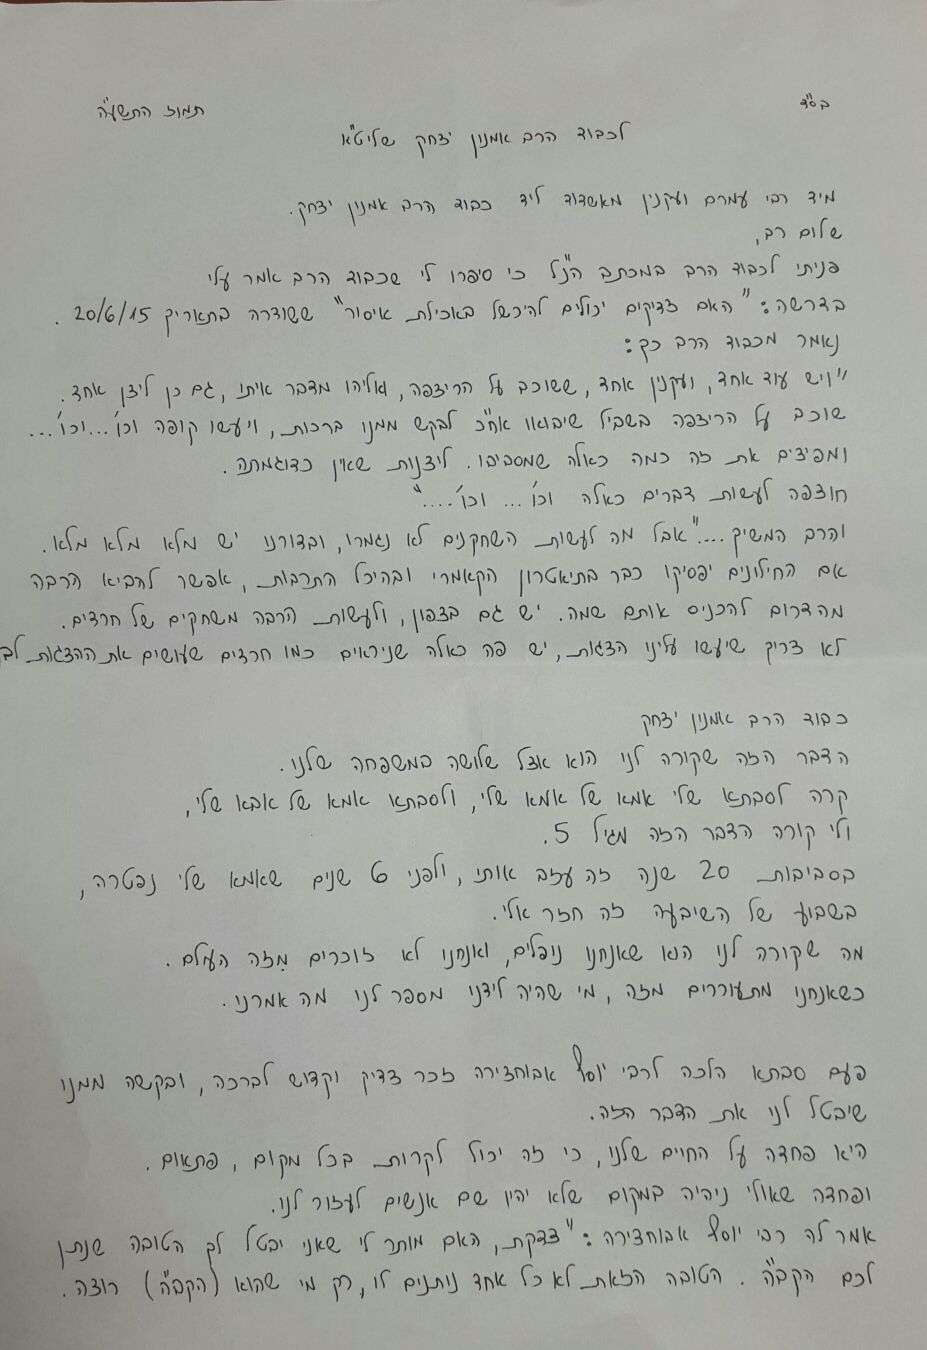 בס"ד
תמוז התשע"ה
לכבוד הרב אמנון יצחק שליט"א
מיד רבי עמרם ועקנין מאשדוד ליד כבוד הרב אמנון יצחק.
שלום רב,
פניתי לכבוד הרב במכתב הנ"ל כי סיפרו לי שכבוד הרב אמר עלי
בדרשה: "האם צדיקים יכולים להיכשל באכילת איסור" ששודרה בתאריק 20/6/15 .
נאמר מכבוד הרב כך:
"ויש עוד אחד, ועקנין אחד, ששוכב על הריצפה, ואליהו מדבר איתו, גם כן ליצן אחד.
שוכב על הריצפה בשביל שיבואו אח"כ לבקש ממנו ברכות, ויעשו קופה וכו'...וכו'...
ומפיצים את זה כמה כאלה שמסביבו. ליצנות שאין כדוגמתה.
חוצפה לעשות דברים כאלה וכו'... וכו'...."
והרב המשיך ...."אבל מה לעשות השחקנים לא נגמרו, ובדורנו יש מלא מלא מלא.
אם החילונים יפסיקו כבר בתיאטרון הקאמרי ובהיכל התרבות, אפשר להביא הרבה
מהדרום להכניס אותם שמה. יש גם בצפון, ולעשות הרבה משחקים של חרדים.
לא צריך שיעשו עלינו הצגות, יש פה כאלה שניראים כמו חרדים שעושים את ההצגות לב
כבוד הרב אמנון יצחק
הדבר הזה שקורה לנו הוא אצל שלושה במשפחה שלנו.
קרה לסבתא שלי אמא של אמא שלי, ולסבתא אמא של אבא שלי,
ולי קורה הדבר הזה מגיל 5.
בסביבות 20 שנה זה עזב אותי, ולפני 6 שנים שאמא שלי נפטרה,
בשבוע של השיבעה זה חזר אלי.
מה שקורה לנו הוא שאנחנו נופלים, ואנחנו לא זוכרים מזה העולם.
כשאנחנו מתעוררים מזה, מי שהיה לידנו מספר לנו מה אמרנו.
פעם סבתא הלכה לרבי יוסף אבוחצירה זכר צדיק וקדוש לברכה, ובקשה ממנו
שיבטל לנו את הדבר הזה.
היא פחדה על החיים שלנו, כי זה יכול לקרות בכל מקום, פתאום.
ופחדה שאולי ניהיה במקום שלא יהיו שם אנשים לעזור לנו.
אמר לה רבי יוסף אבוחצירה: "צדקת, האם מותר לי שאני יבטל לך הטובה שנתן
לכם הקב"ה. הטובה הזאת לא כל אחד נותנים לו, רק מי שהוא (הקב"ה) רוצה.